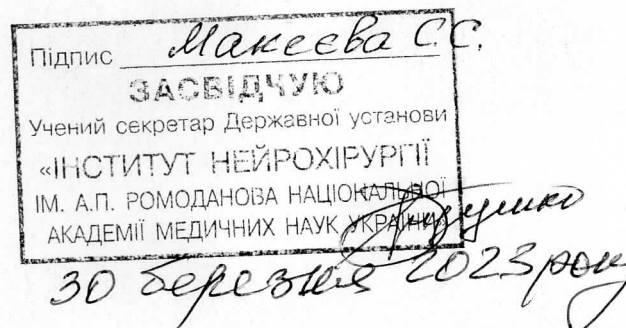 Підпис Макєєва С.С.
ЗАСВІДЧУЮ
Учений секретар Державної установи
«ІНСТИТУТ НЕЙРОХІРУРГІЇ
ІМ. А.П. РОМОДАНОВА НАЦІОНАЛЬНОЇ
АКАДЕМІЇ МЕДИЧНИХ НАУК УКРАЇНИ»
30 березня 2023 року